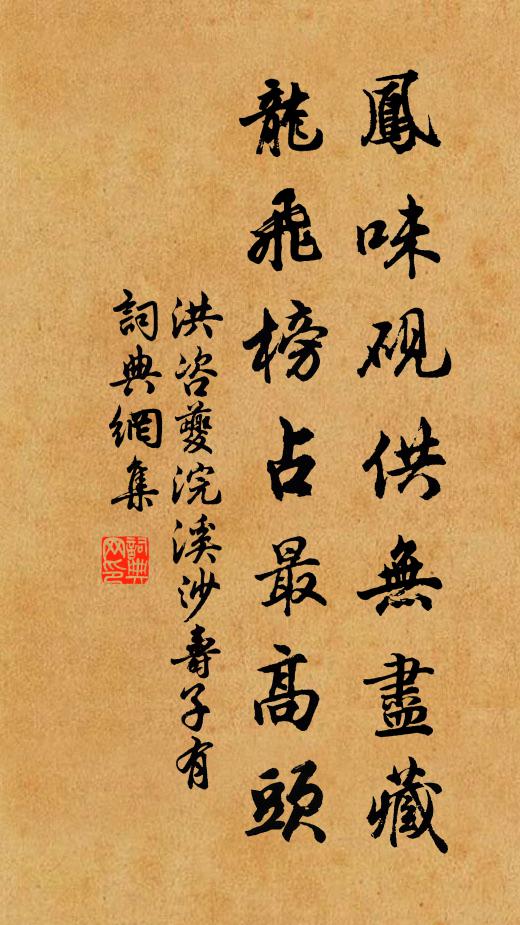 鳳味硯供無盡藏
龍飛榜占最高頭
洪咨夔浣溪沙壽子有
詞典網集
詞典網印